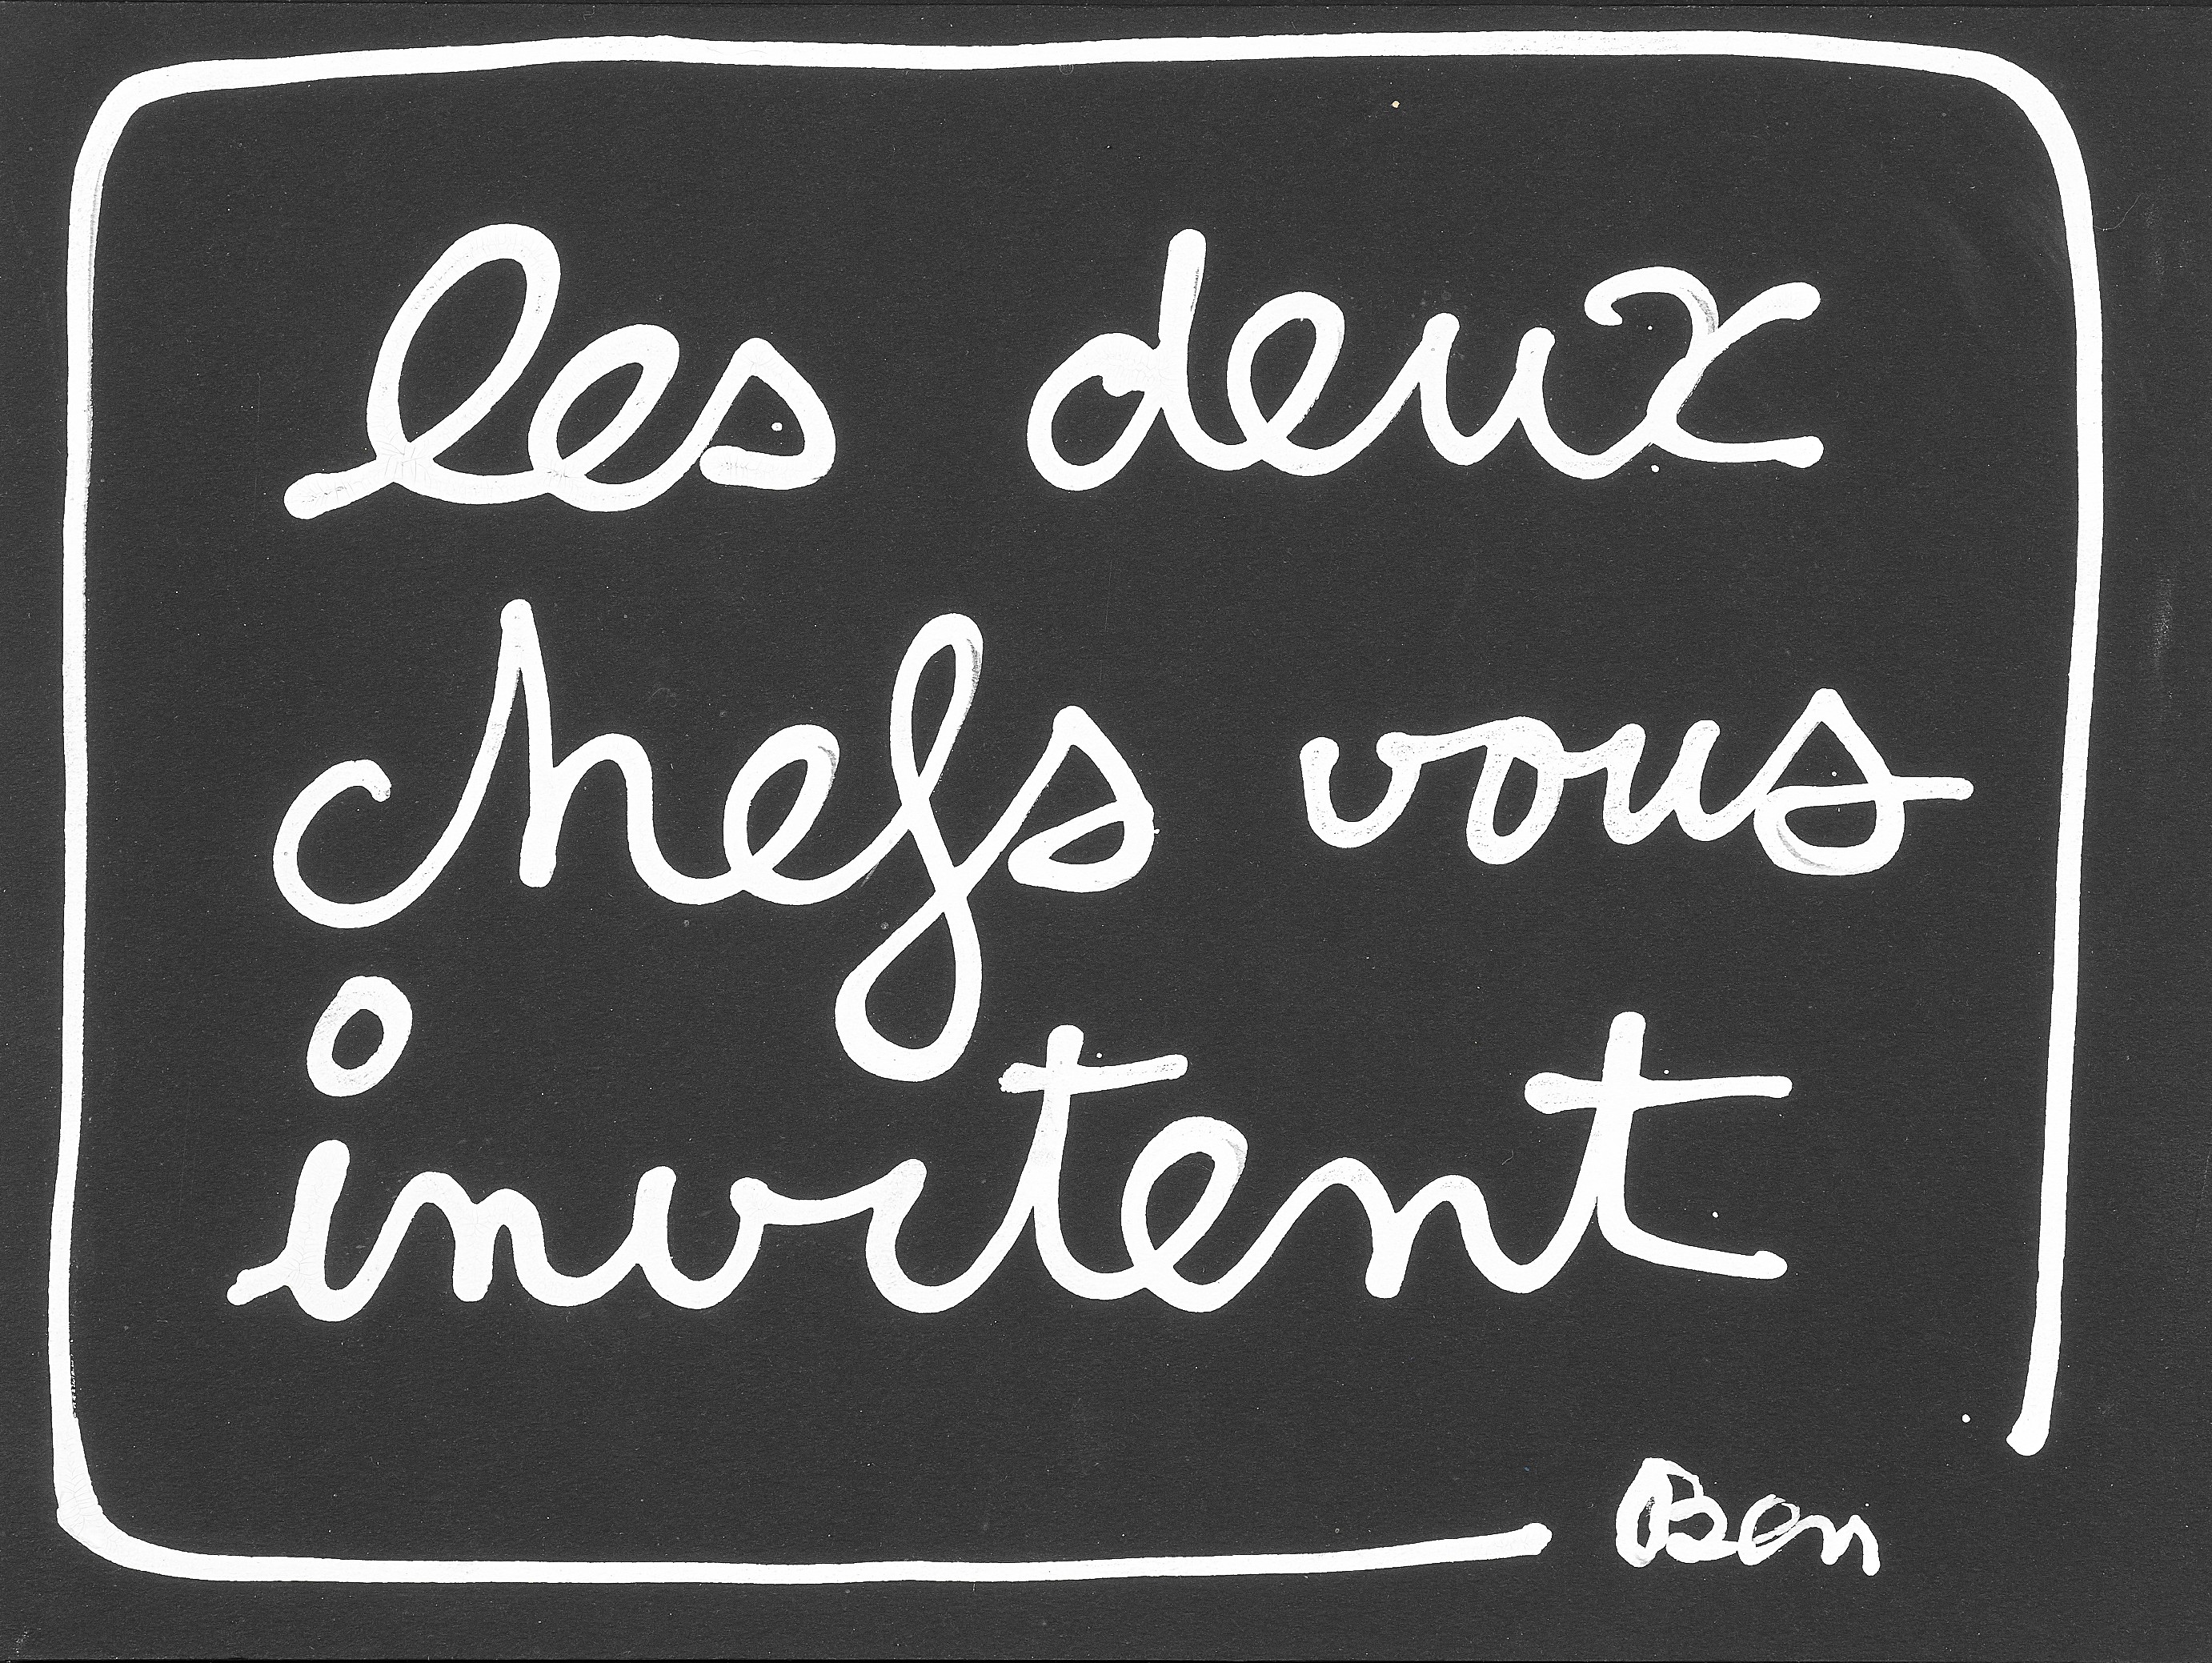 les deux
chefs vous
invitent
Ben